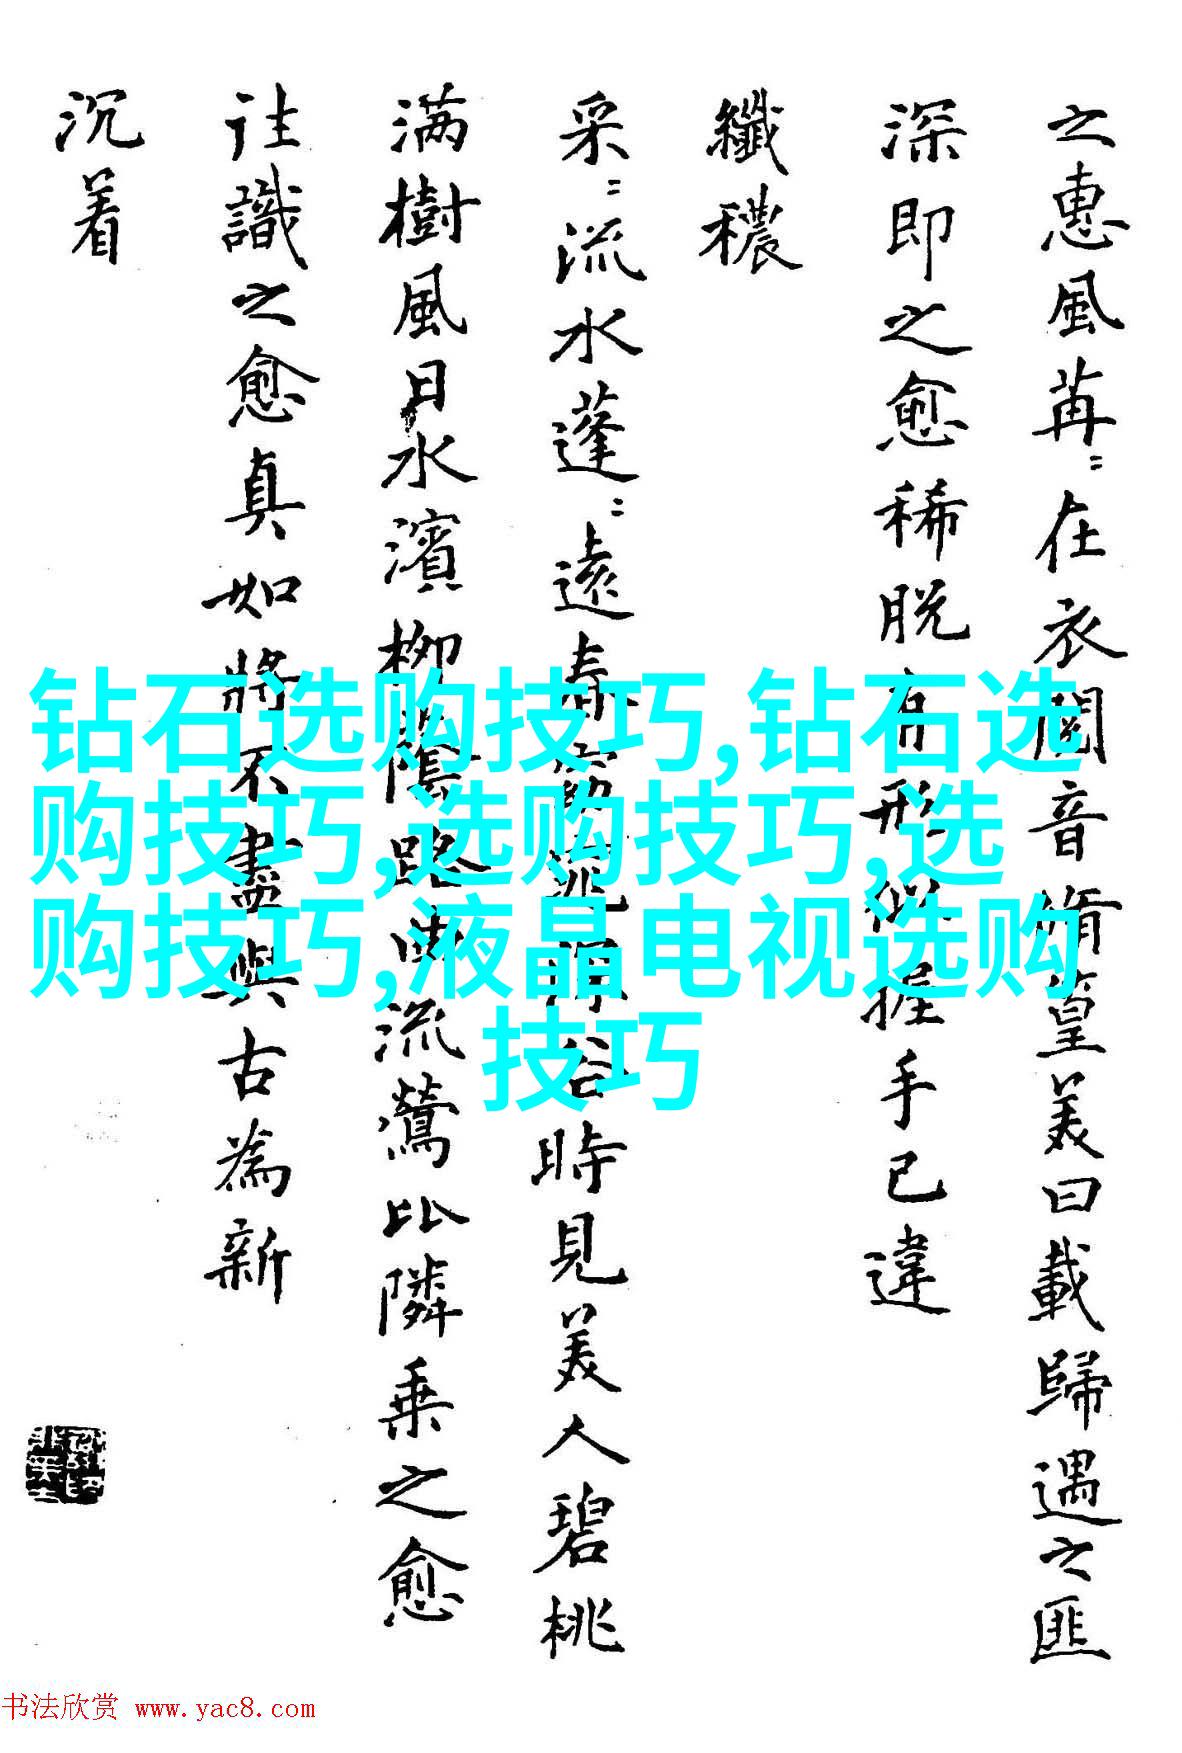 之惠風苒〻在衣閱音脩篁美曰載歸遇之匪
深即之愈稀脫有形似握手已違
纖穠
采〻流水蓬〻遠春窈窕深谷時見美人碧桃
滿樹風日水濱柳陰路曲流鶯比隣乗之愈
往識之愈真如將不盡與古為新
沉着
钻石选购技巧,钻石选
购技巧,选购技巧,选
购技巧,液晶电视选购
技巧
书法欣赏 www.yac8.com